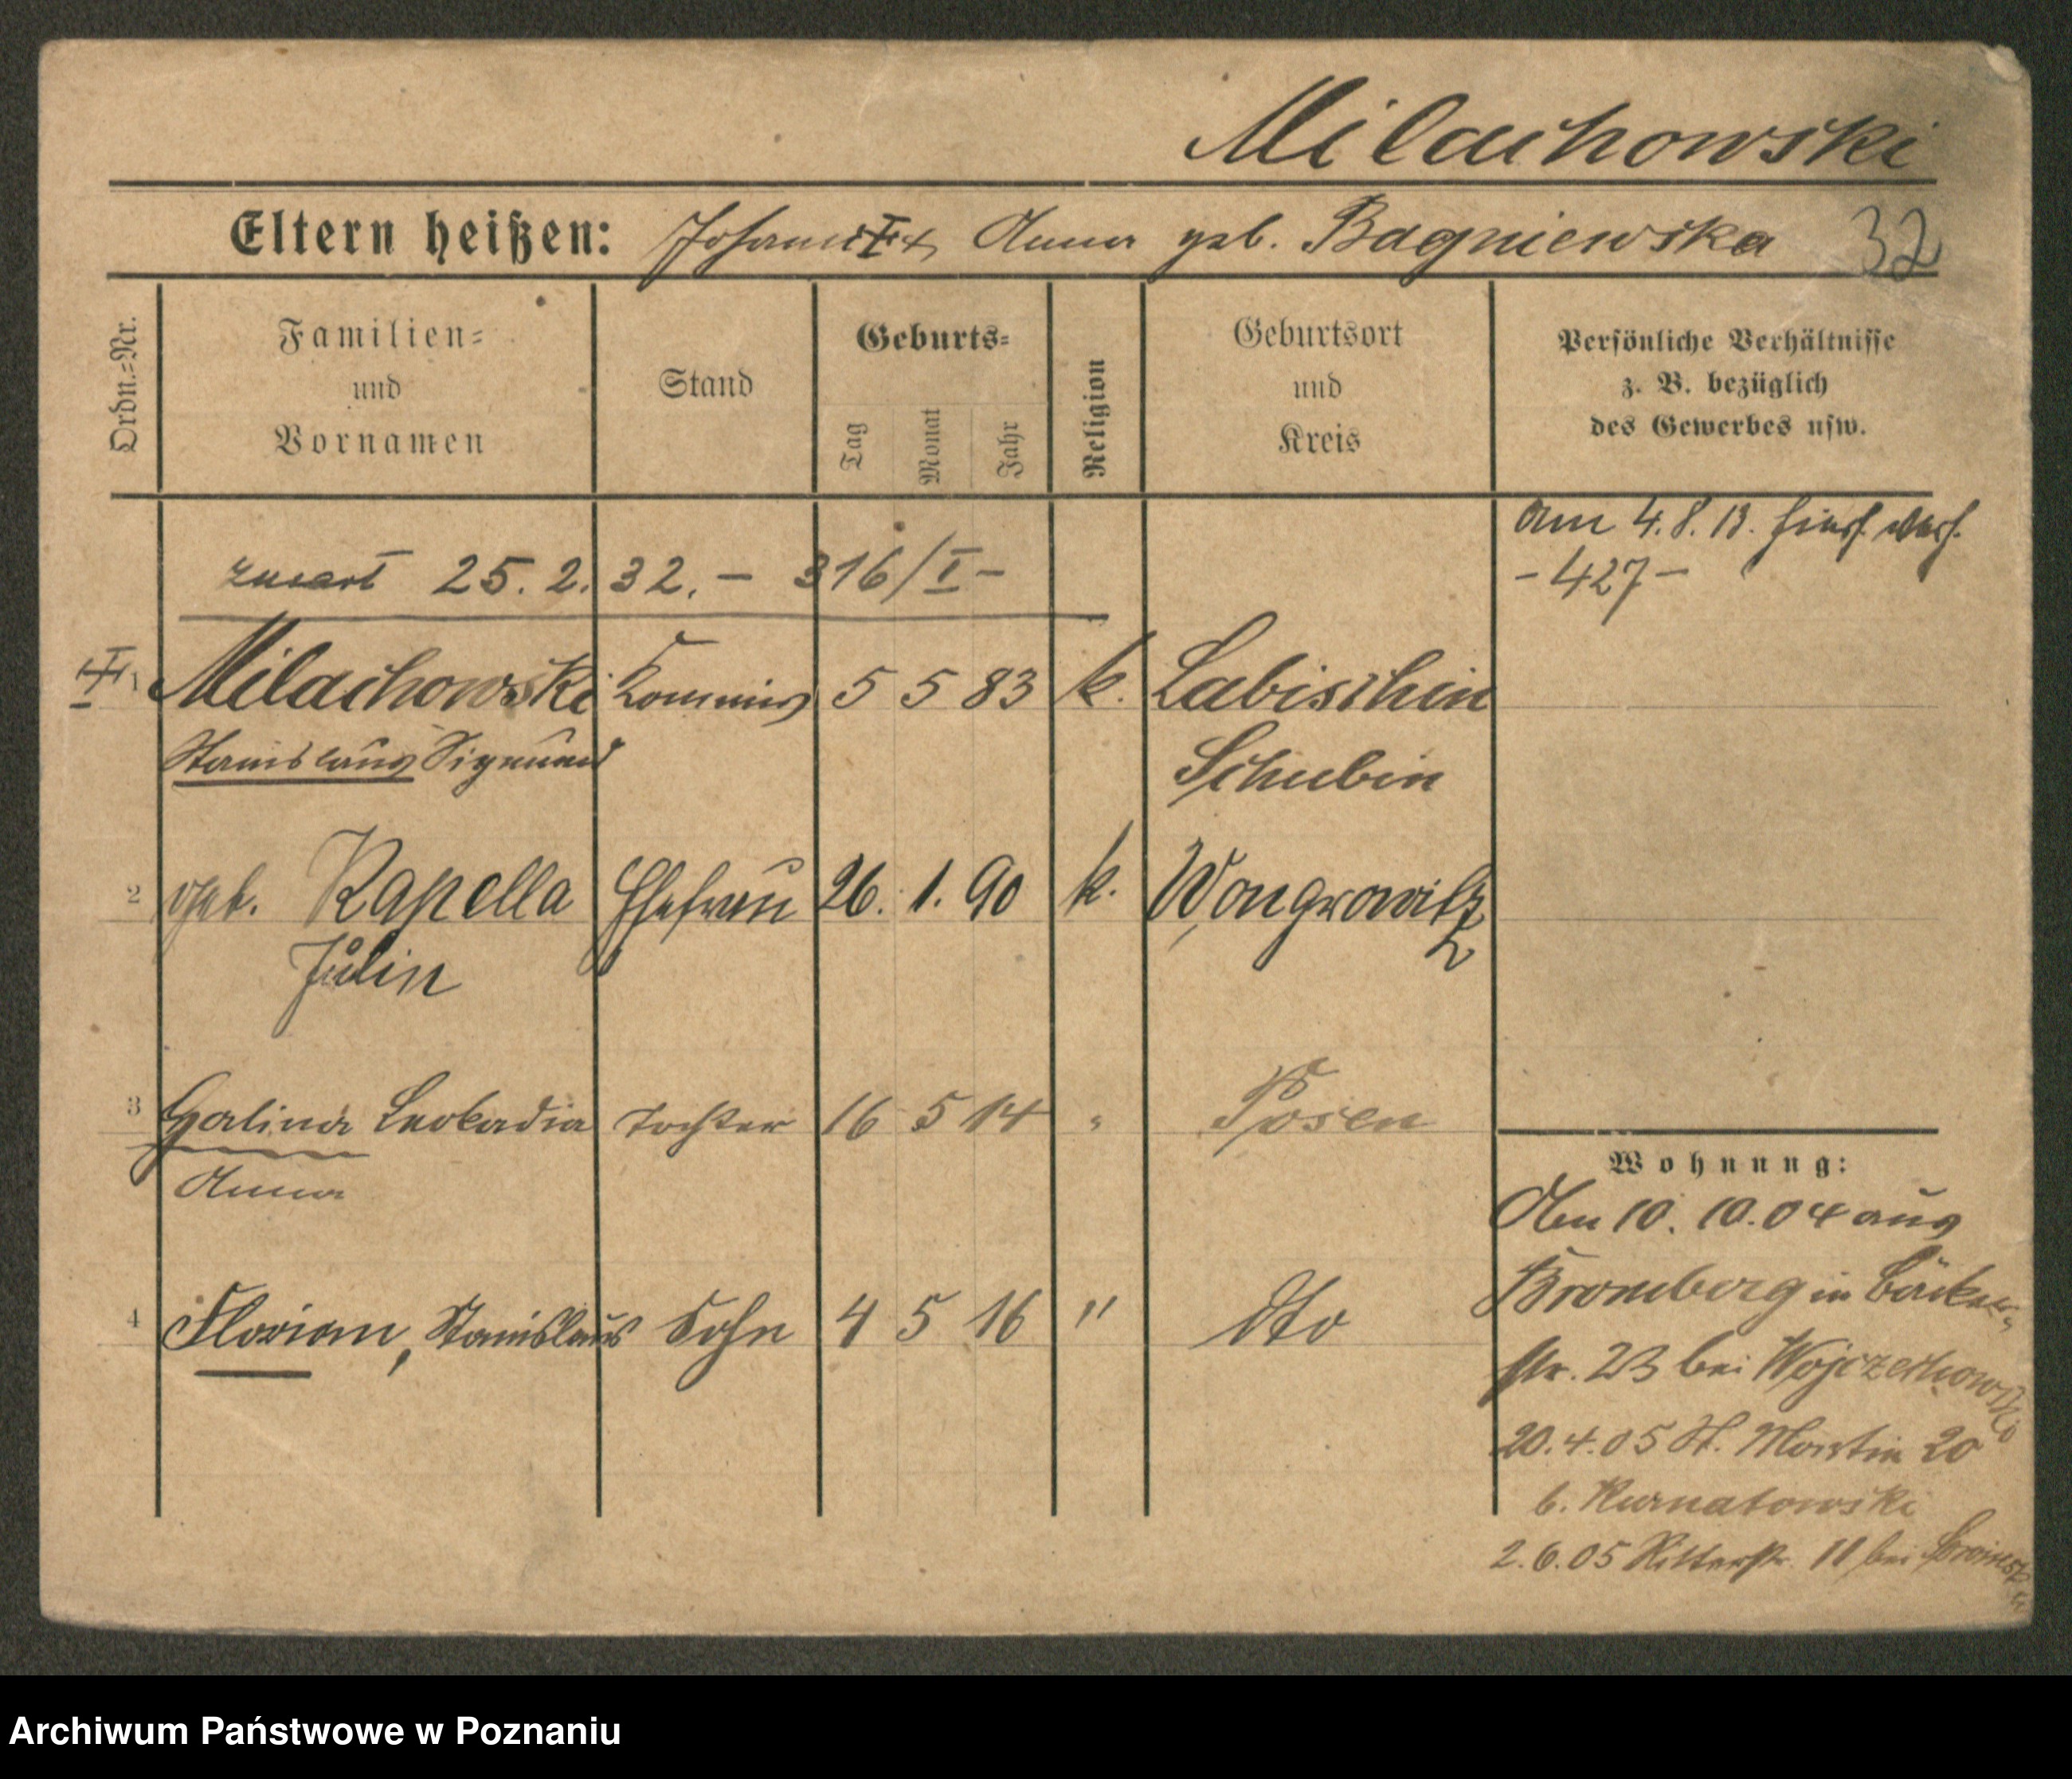 Milachowski
Eltern heißen: Johann u Anna geb. Bagniewska 32
Ordn.=Nr.
Familien=
und
Vornamen
Stand
Geburts=
Tag
Monat
Jahr
Religion
Geburtsort
und
Kreis
Persönliche Verhältnisse
z. B. bezüglich
des Gewerbes usw.
am 4.8.13.
-427-
zmarł 25.2.32.- 316/I-
1 Milachowski Kommis 5 5 83 k. Labischin
Stanislaus Sigmund Schubin
2 geb. Kapella Ehefrau 26. 1. 90 k. Wongrowitz
Julia
3 Halina Leokadia Tochter 16 5 14 " Posen
Anna
4 Florian, Stanislaus Sohn 4 5 16 " dto
Wohnung:
Am 10. 10. 04 aus
Bromberg in Bäcker-
str. 23 bei Wojczechowski
20.4.05 St. Martin 20
b. Kurnatowski
2.6.05 Ritterstr. 11 bei
Archiwum Państwowe w Poznaniu